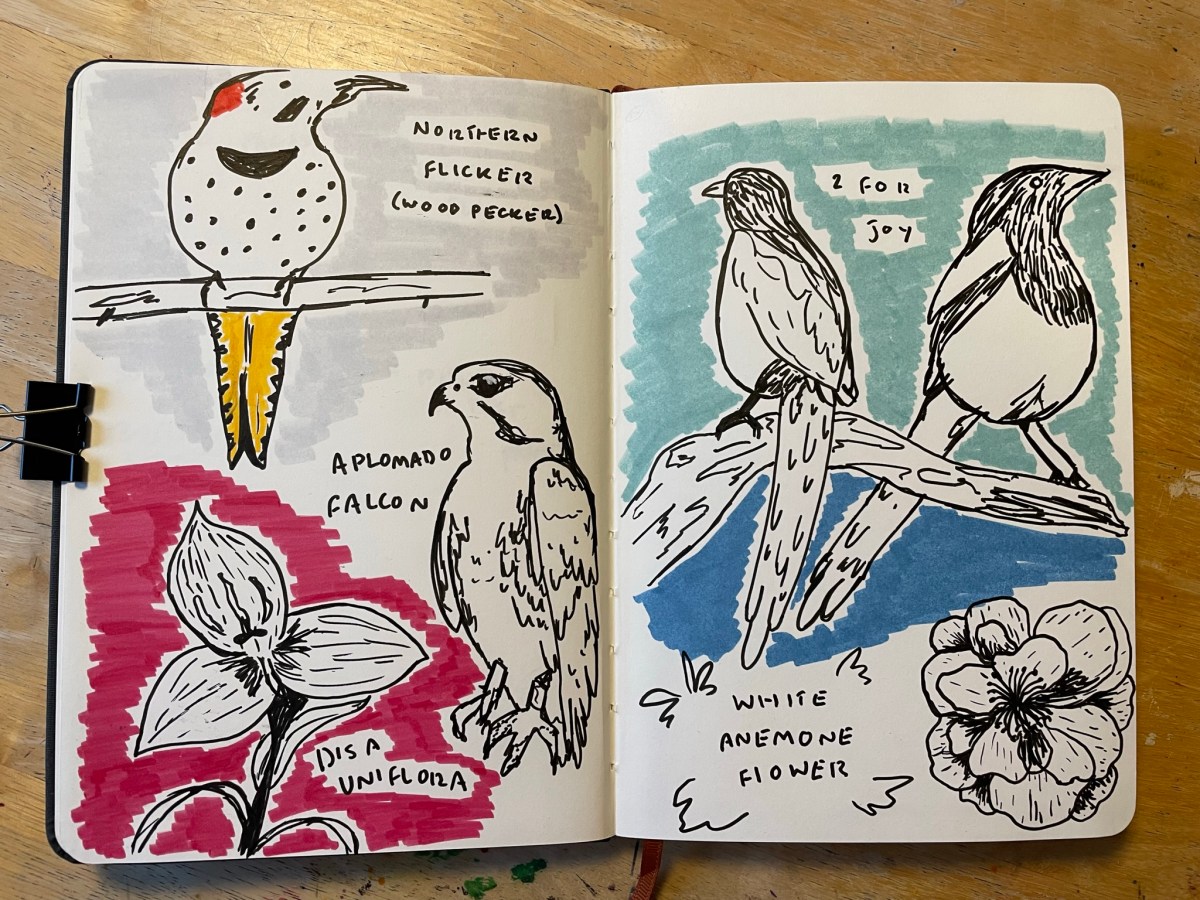 NORTHERN
FLICKER
(WOOD PECKER)
APLOMADO
FALCON
DISA
UNIFLORA
2 FOR
JOY
WHITE
ANEMONE
FLOWER